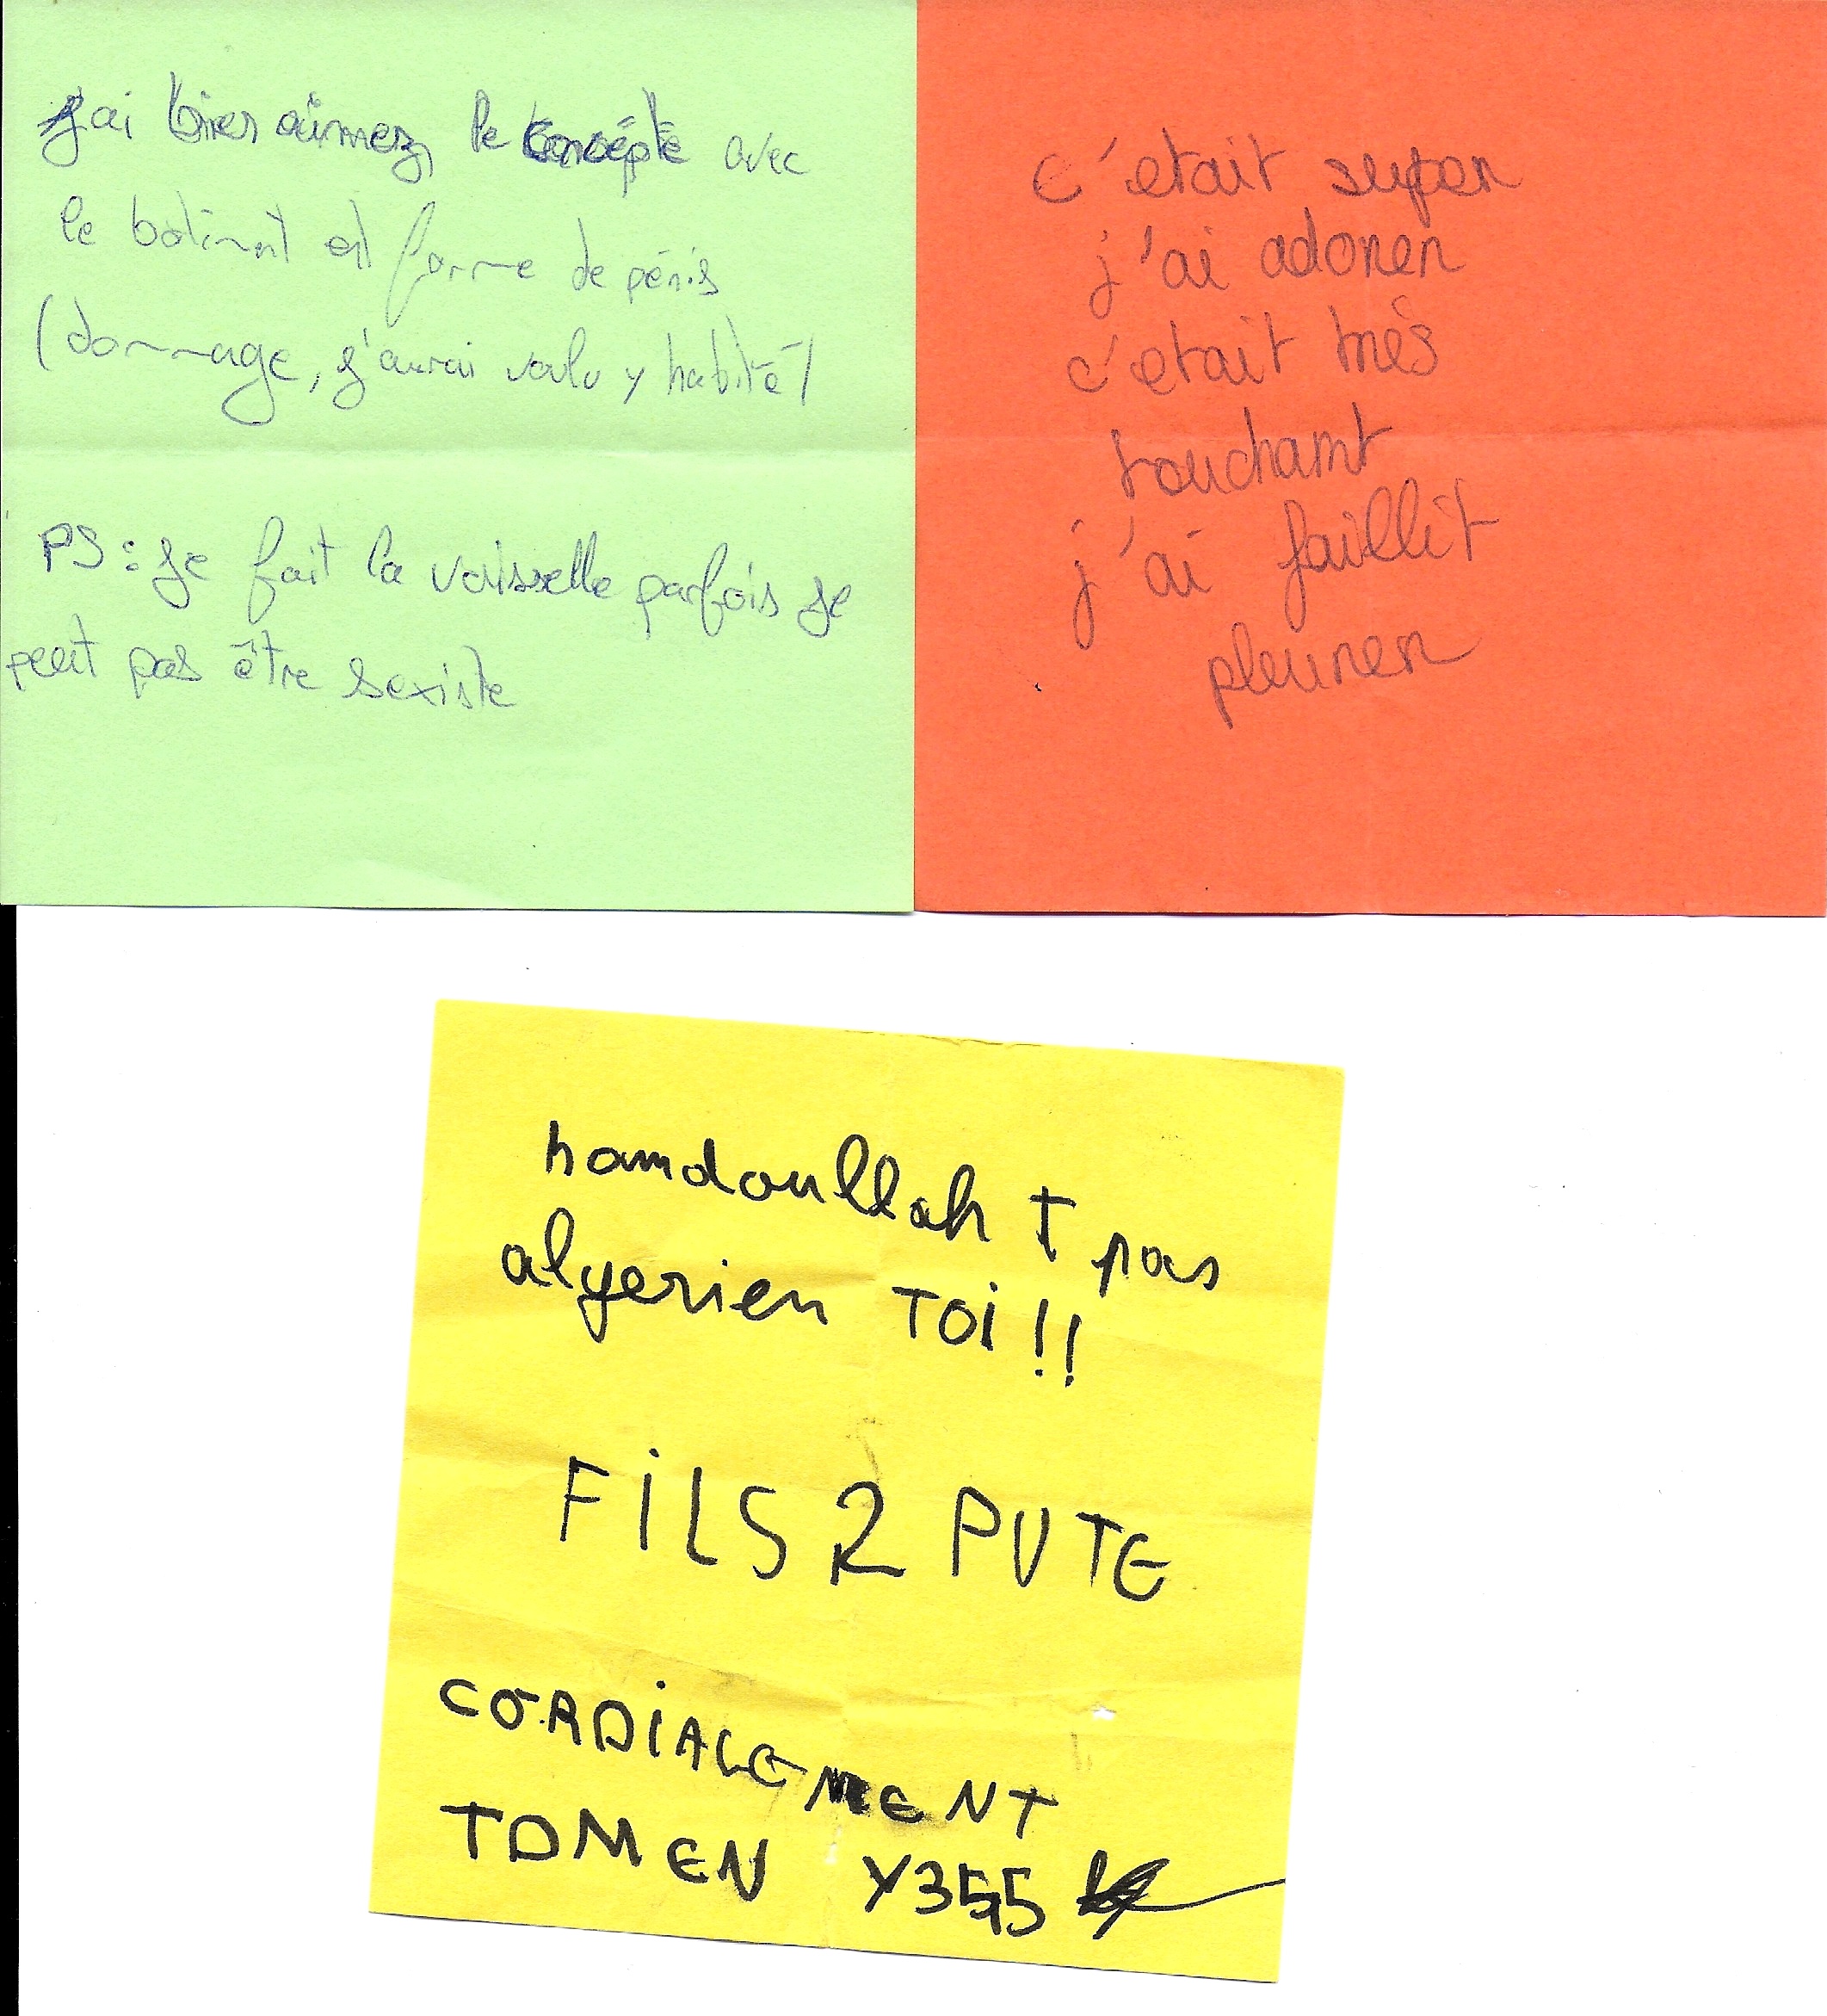 j'ai bien aimez le concépte avec
le batiment en forme de pénis
(dommage, j'aurai voulu y habité)
PS : je fait la vaisselle parfois je
peut pas être sexiste
c'etait super
j'ai adorer
c'etait très
touchant
j'ai faillit
pleurer
hamdoullah T pas
algerien TOi !!
FiLS 2 PUTE
CORDiALEMENT
TOMEN Y355